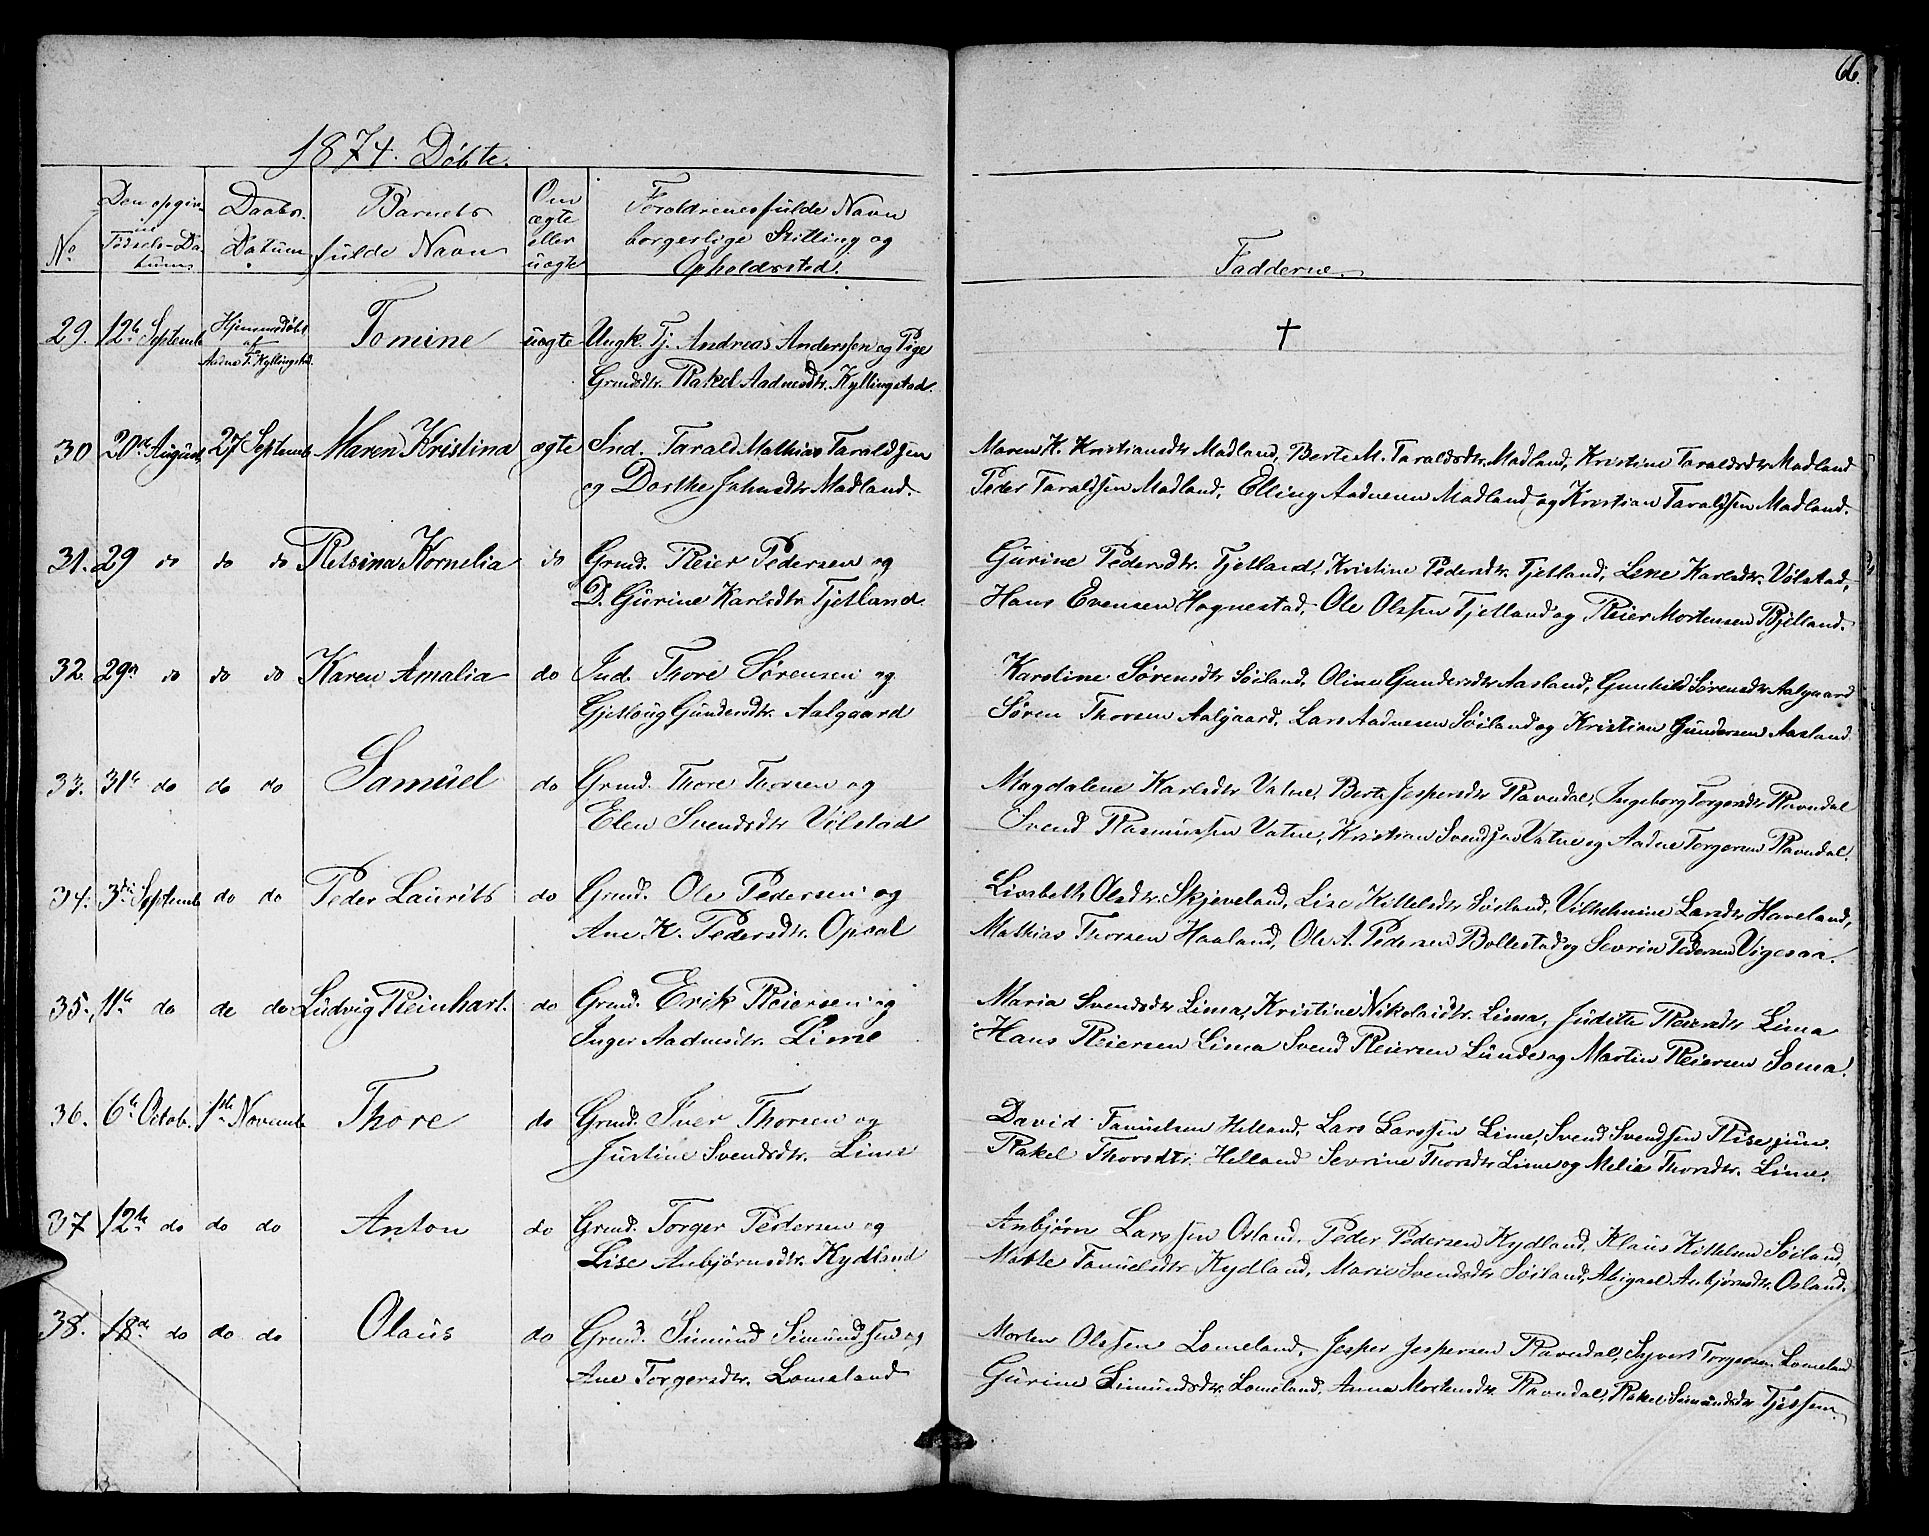 66.
1874. Døbte.
No
Den opgivne Fødsels-Datum
Daabs-Datum
Barnets fulde Navn
Om ægte eller uægte
Forældrenes fulde Navn borgerlige Stilling og Opholdssted.
Fadderne.
29. 12te Septemb Hjemmedøbt af Aadne T. Kyllingstad. Tomine uægte Ungk. Tj. Andreas Anderssen og Pige
Grmdsdtr. Rakel Aadnesdtr. Kyllingstad.
†
30 20de August 27 Septemb Maren Kristina ægte Ind. Tarald Mathias Taraldsen
og Dorthe Johnsdtr Madland.
Maren K. Kristiansdtr Madland, Berte M. Taraldsdtr. Madland, Kristine Taraldsdtr Madland
Peder Taraldsen Madland, Elling Aadnesen Madland og Kristian Taraldsen Madland.
31. 29 do do do Retsina Kornelia do Grmd. Reier Pedersen og
D. Gurine Karlsdtr Tjetland
Gurine Pedersdtr. Tjetland, Kristine Pedersdtr. Tjetland, Lene Karlsdtr. Vølstad,
Hans Evensen Hognestad, Ole Olssen Tjetland og Reier Mortensen Bjelland.
32. 29n do do do Karen Amalia do Ind. Thore Sørensen og
Gjetloug Gundersdtr. Aalgaard
Karoline Sørensdtr Søiland, Oline Gundersdtr Aasland, Gunhild Sørensdtr Aalgaard
Søren Thorsen Aalgaard, Lars Aadnesen Søiland og Kristian Gundersen Aasland.
33. 31te do do do Samuel do Grmd. Thore Thorsen og
Elen Svendsdtr Vølstad
Magdalene Karlsdtr Vatne, Berte Jespersdtr Ravndal, Ingeborg Torgersdtr Ravndal
Svend Rasmussen Vatne, Kristian Svendsen Vatne og Aadne Torgersen Ravndal.
34. 3die Septemb do do Peder Laurits do Grmd. Ole Pedersen og
Ane K. Pedersdtr. Opsal
Livsbeth Olsdtr. Skjeveland, Lise Kittelsdtr Søiland, Vilhelmine Larsdtr Haveland,
Mathias Thorsen Haaland, Ole A. Pedersen Bollestad og Sevrin Pedersen Vigesaa.
35. 11te do do do Ludvig Reinhart. do Grmd. Erik Reiersen og
Inger Aadnesdtr. Lime
Maria Svendsdtr Lima, Kristine Nikolaidtr. Lima, Juditte Reiersdtr Lima
Hans Reiersen Lima Svend Reiersen Lunde og Martin Reiersen Soma.
36. 6te Octob. 1ste Novemb Thore do Grmd. Iver Thorsen og
Justine Svendsdtr. Lime
David Samuelsen Helland, Lars Larssen Lime, Svend Svendsen Rise jun.
Rakel Thorsdtr. Helland Sevrine Thorsdtr Lime og Melia Thorsdtr. Lime.
37 12te do do do Anton do Grmd. Torger Pedersen og
Lise Anbjørnsdtr. Kydland
Anbjørn Larssen Osland, Peder Pedersen Kydland, Klaus Kittelsen Søiland,
Malte Samuelsdtr Kydland, Marie Svendsdtr Søiland, Abigael Anbjørnsdtr. Osland.
38. 18de do do do Olaus do Grmd. Simund Simundsen og
Ane Torgersdtr. Lomeland
Morten Olssen Lomeland, Jesper Jespersen Ravndal, Sivert Torgersen Lomeland
Gurine Simundsdtr Lomeland, Anna Mortensdtr. Ravndal, Rakel Simundsdtr Tjessem.